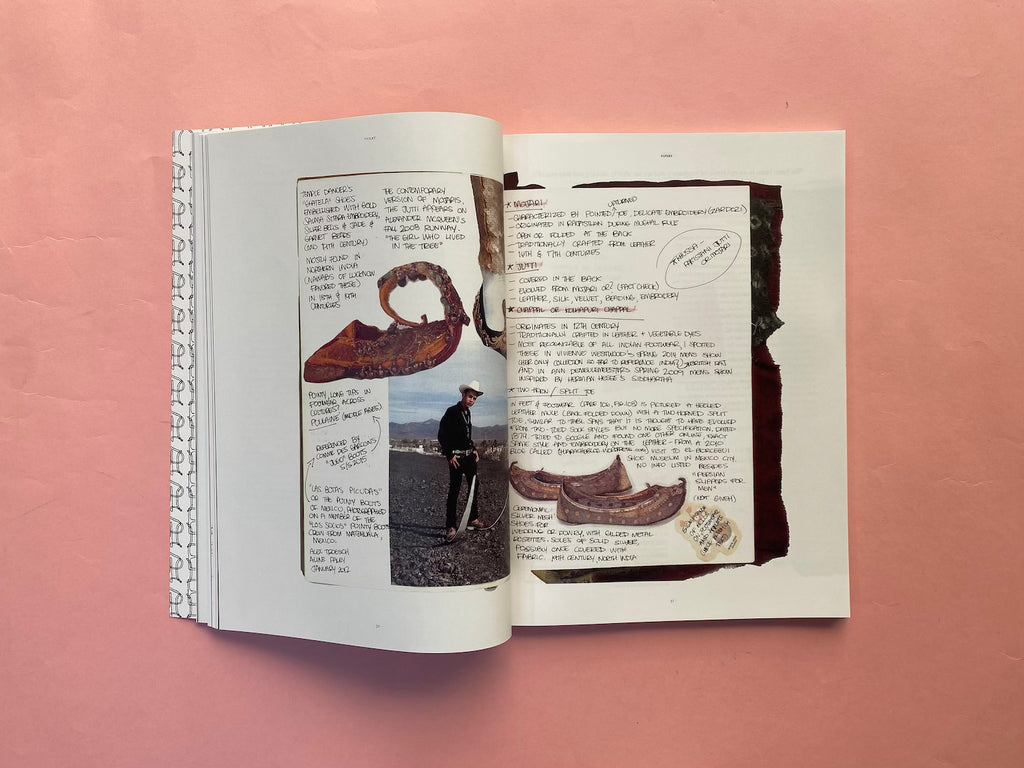 TEMPLE DANCER'S
"GHATELA" SHOES
EMBELLISHED WITH GOLD
SALMA SITARA EMBROIDERY,
SILVER BELLS & JADE &
GARNET BEADS
(MID 19TH CENTURY)
MOSTLY FOUND IN
NORTHERN INDIA
(NAWABS OF LUCKNOW
FAVORED THESE)
IN 18TH & 19TH
CENTURIES
THE CONTEMPORARY
VERSION OF MOJARIS,
THE JUTTI APPEARS ON
ALEXANDER MCQUEEN'S
FALL 2008 RUNWAY.
"THE GIRL WHO LIVED
IN THE TREE"
POINTY, LONG TIPS IN
FOOTWEAR ACROSS
CULTURES!
POULAINE (MIDDLE AGES)
REFERENCED BY
COMME DES GARCONS
BOOTS
S/S 2015
"LAS BOTAS PICUDAS"
OR THE POINTY BOOTS
OF MEXICO, PHOTOGRAPHED
ON A MEMBER OF THE
"LOS SOCIOS" POINTY BOOTS
CREW FROM MATEHUALA,
MEXICO.
ALEX TROESCH
ALINE PALEY
JANUARY 2012
★ MOJARI
UPTURNED
- CHARACTERIZED BY POINTED/TOE, DELICATE EMBROIDERY (ZARDOZI)
- ORIGINATED IN RAJASTHAN DURING MUGHAL RULE
- OPEN OR FOLDED AT THE BACK
- TRADITIONALLY CRAFTED FROM LEATHER
16TH & 17TH CENTURIES
★ KHUSSA
PAKISTANI JUTTI
OR MOJARI
★ JUTTI
- COVERED IN THE BACK
- EVOLVED FROM MOJARI OR? (FACT CHECK)
- LEATHER, SILK, VELVET, BEADING, EMBROIDERY
★ CHAPPAL OR KOLHAPURI CHAPPAL
- ORIGINATES IN 12TH CENTURY
- TRADITIONALLY CRAFTED IN LEATHER + VEGETABLE DYES
- MOST RECOGNIZABLE OF ALL INDIAN FOOTWEAR, I SPOTTED
THESE IN VIVIENNE WESTWOOD'S SPRING 2014 MENS SHOW
(HER ONLY COLLECTION SO FAR TO REFERENCE INDIA)
AND IN ANN DEMEULEMEESTER'S SPRING 2009 MENS SHOW
INSPIRED BY HERMAN HESSE'S SIDDHARTHA
★ TWO HORN / SPLIT TOE
IN FEET & FOOTWEAR (PAGE 106, FIG 108) IS PICTURED A HEELED
LEATHER MULE (BACK FOLDED DOWN) WITH A TWO HORNED SPLIT
TOE, SIMILAR TO TABI. SAYS THAT IT IS THOUGHT TO HAVE EVOLVED
FROM TWO-TOED SOCK STYLES BUT NO MORE SPECIFICATION, DATED
1879. TRIED TO GOOGLE AND FOUND ONE OTHER ONLINE, EXACT
SAME STYLE AND EMBROIDERY ON THE LEATHER - FROM A 2010
BLOG CALLED VISIT TO EL BORCEGUI
SHOE MUSEUM IN MEXICO CITY.
NO INFO LISTED BESIDES
"PERSIAN
SLIPPERS FOR
MEN"
(NOT GIVEN)
CEREMONIAL
SILVER MESH
SHOES FOR
WEDDING OR DOWRY, WITH GILDED METAL
ROSETTES. SOLES OF SOLID SILVER,
POSSIBLY ONCE COVERED WITH
FABRIC. 19TH CENTURY, NORTH INDIA